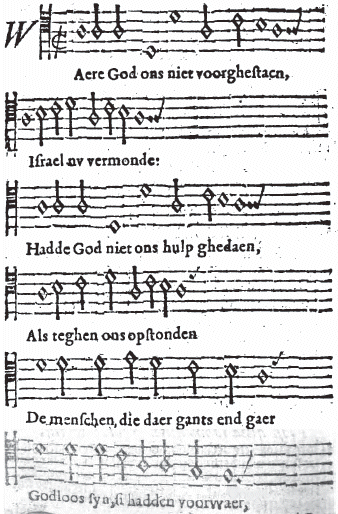 WAere God ons niet voorghestaen,
Israel nv vermonde:
Hadde God niet ons hulp ghedaen,
Als teghen ons opstonden
De menschen, die daer gants end gaer
Godloos syn, si hadden voorwaer,